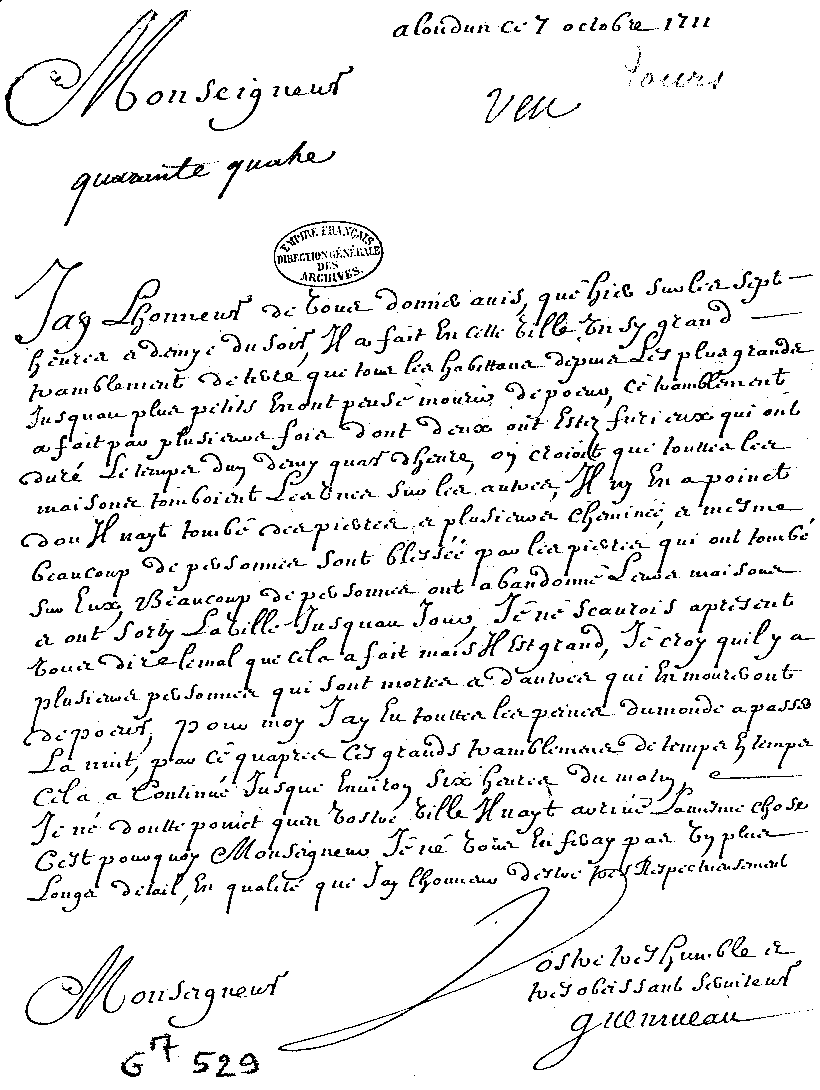 a loudun ce 7 octobre 1711
Monseigneur
veu
Tours
quarante quatre
EMPIRE FRANÇAIS
DIRECTION GÉNÉRALE
DES
ARCHIVES.
Jay Lhonneur de vous donner auis, que hier sur les sept
heures e demye du soir, Il a fait En cette ville Un sy grand
tramblement de terre que tous les habittans depuis Les plus grands
Jusquau plus petits En ont pensé mourir de poeur, ce tramblement
a fait par plusieurs fois dont deux ont Estez furieux qui ont
duré Le temps dun demy quar dheure, on croioit que touttes les
maisons tomboient Les unes sur les autres, Il ny En a poinct
dou Il nayt tombé des pierres e plusieurs cheminée, e mesme
beaucoup de personnes sont blessée par les pierres qui ont tombé
sur Eux, Beaucoup de personnes ont abandonné Leurs maisons
e ont sorty La ville Jusquau Jour, Je ne scaurois apresent
vous dire le mal que cela a fait mais Il Est grand, Je croy quil y a
plusieurs personnes qui sont mortes e dautres qui En mouront
de poeur, pour moy Jay Eu touttes les peines du monde a passer
La nuit, par ce quapres ces grands tramblemens de temps En temps
Cela a Continué Jusque Enuiron six heures du matin,
Je né doutte poinct quen vostre ville Il nayt arrivé La mesme chose
Cest pourquoy Monseigneur Je né vous En feray pas Un plus
Longs détail, En qualité que Jay lhonneur destre tres Respectueusement
Monseigneur
Vostre tres humble e
tres obeissant seruiteur
guenrueau
G7 529